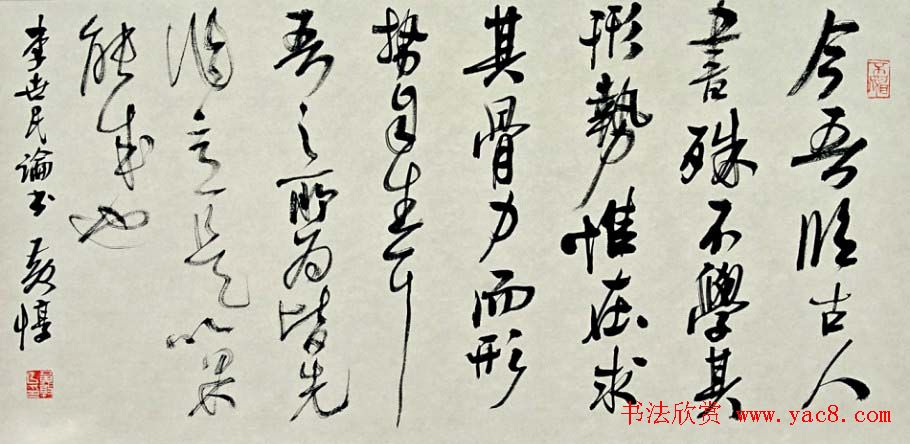 今吾临古人
書殊不學其
形勢惟在求
其骨力而形
势自生耳
吾之所为皆先
作意是以果
能成也
李世民論书 黄惇
书法欣赏 www.yac8.com